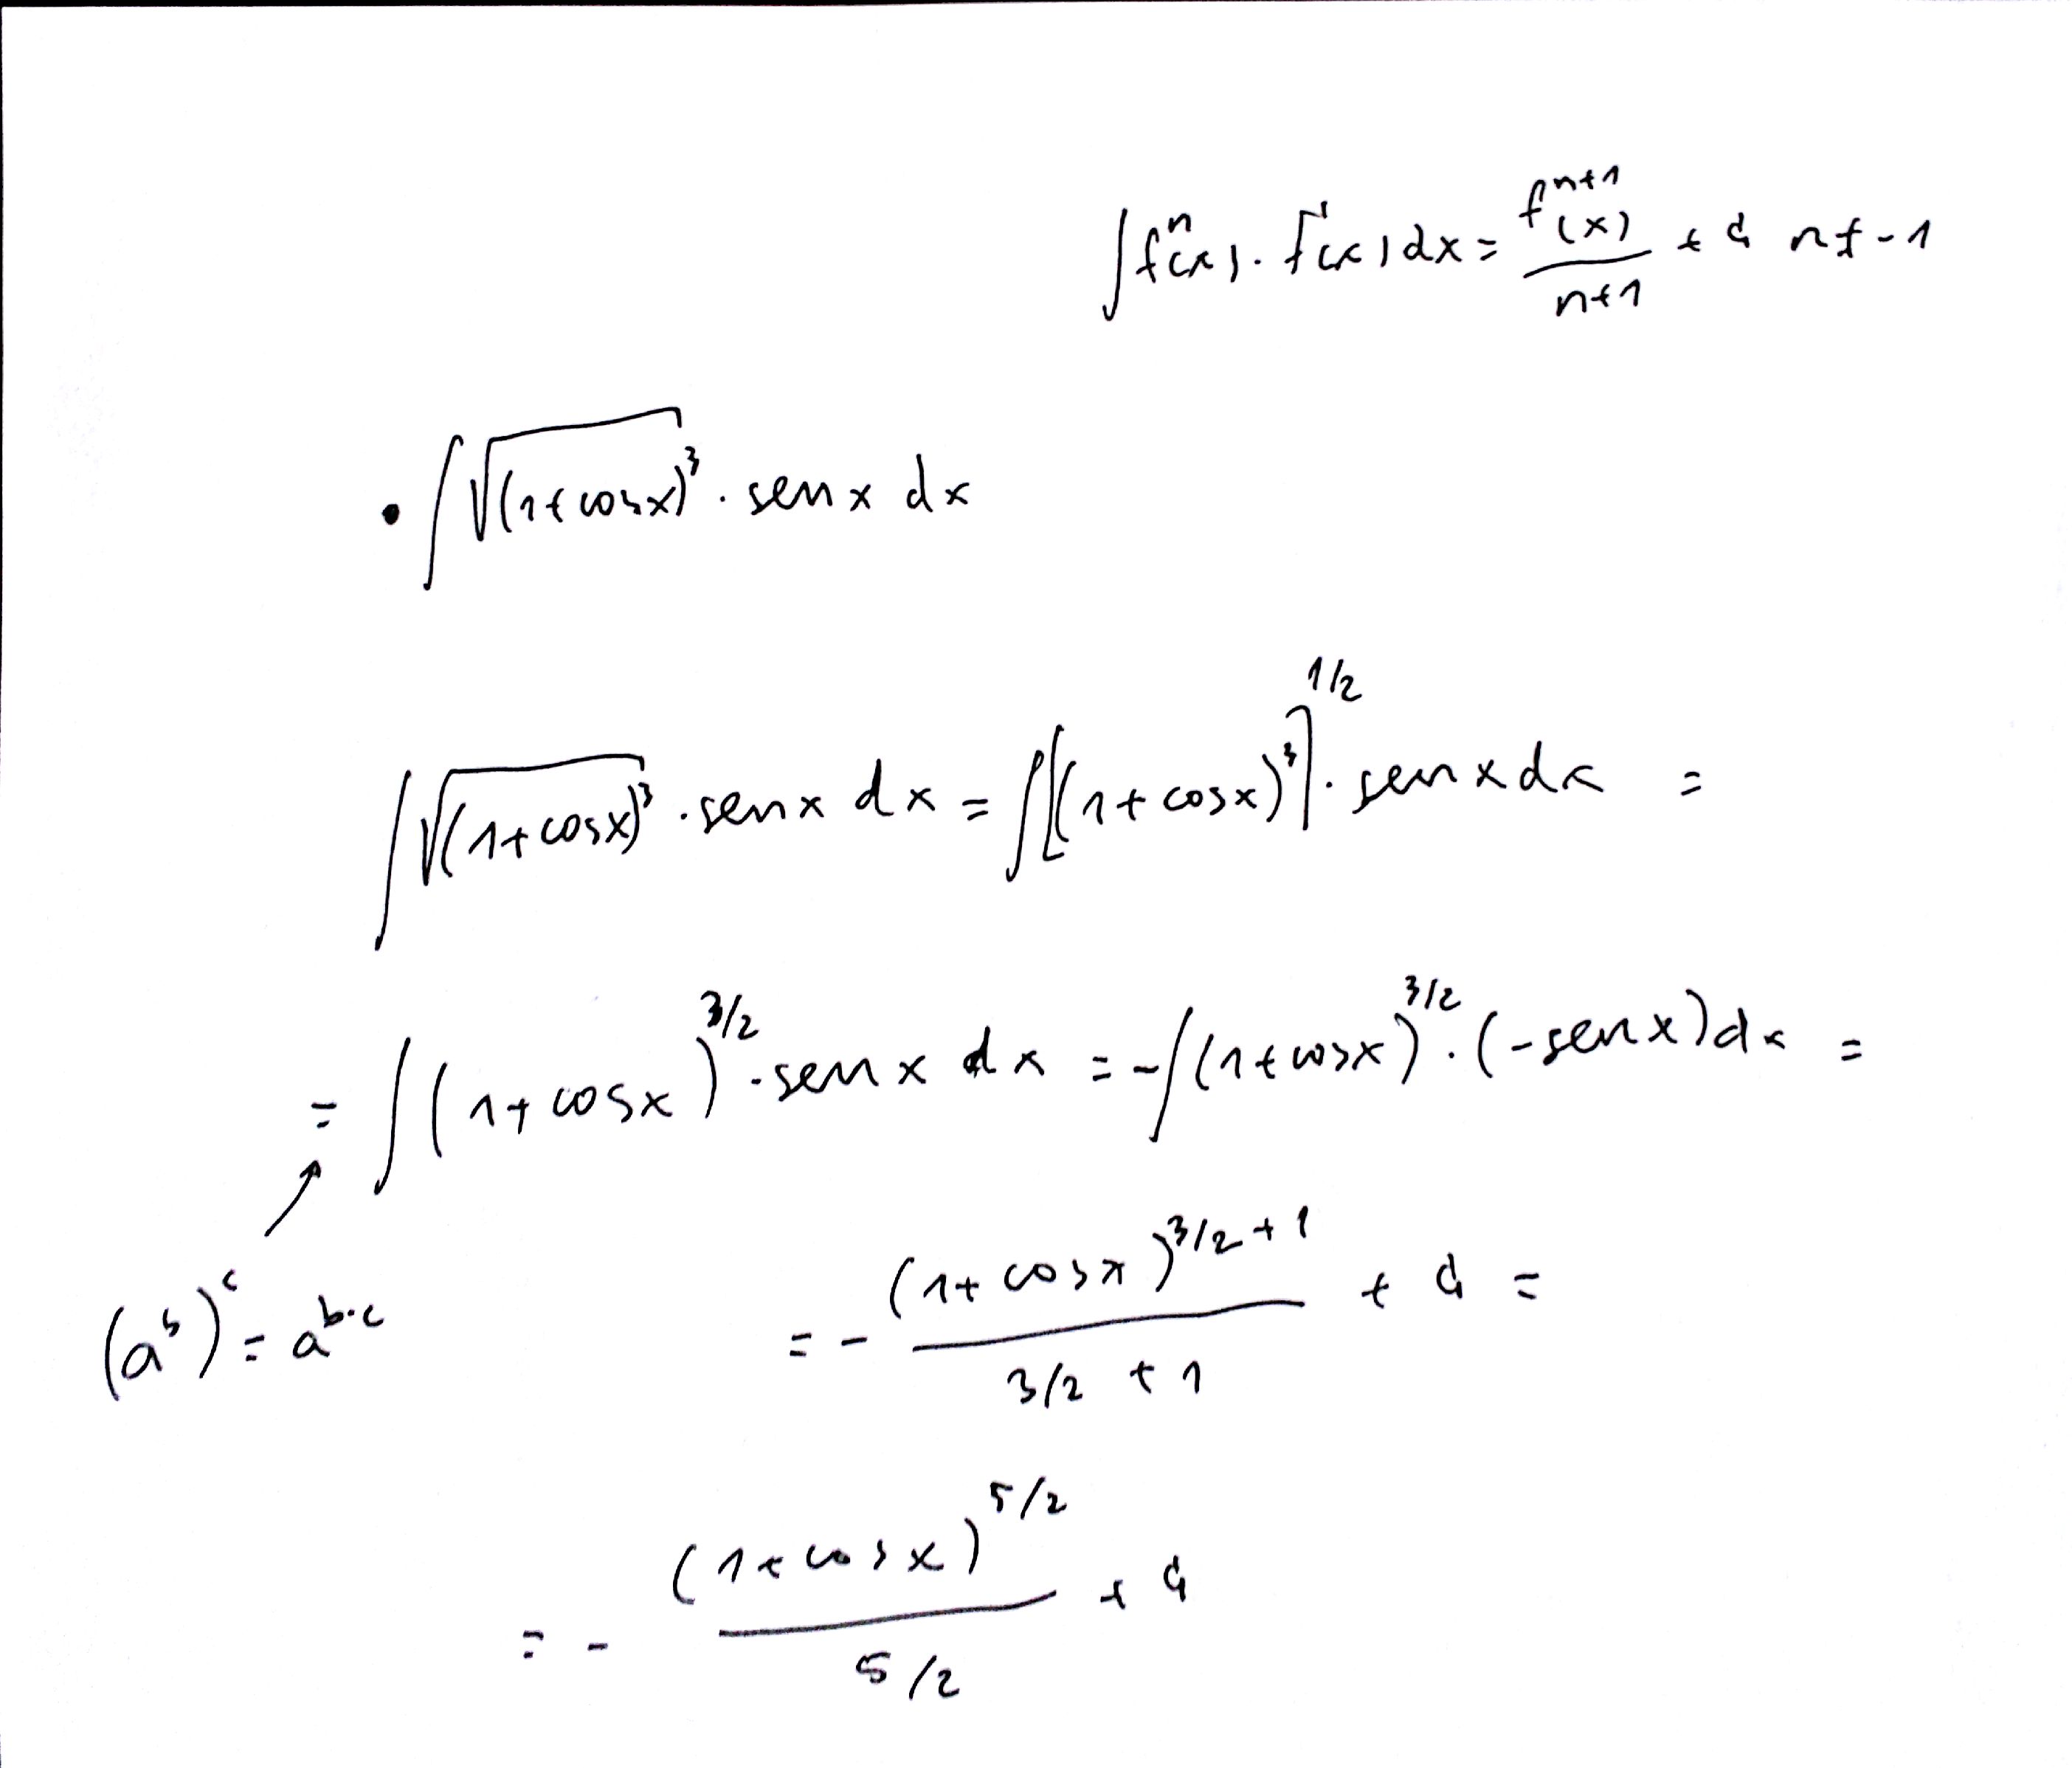 ∫fⁿ(x)·f'(x)dx = fⁿ⁺¹(x)/(n+1) + C n≠-1
• ∫√(1+cosx)³ · sen x dx
∫√(1+cosx)³ · sen x dx = ∫[(1+cosx)³]^(1/2) · sen x dx =
= ∫(1+cosx)^(3/2) · sen x dx = -∫(1+cosx)^(3/2) · (-sen x)dx =
(a^b)^c = a^(b·c)
= - (1+cosx)^(3/2+1)/(3/2+1) + C =
= - (1+cosx)^(5/2)/(5/2) + C